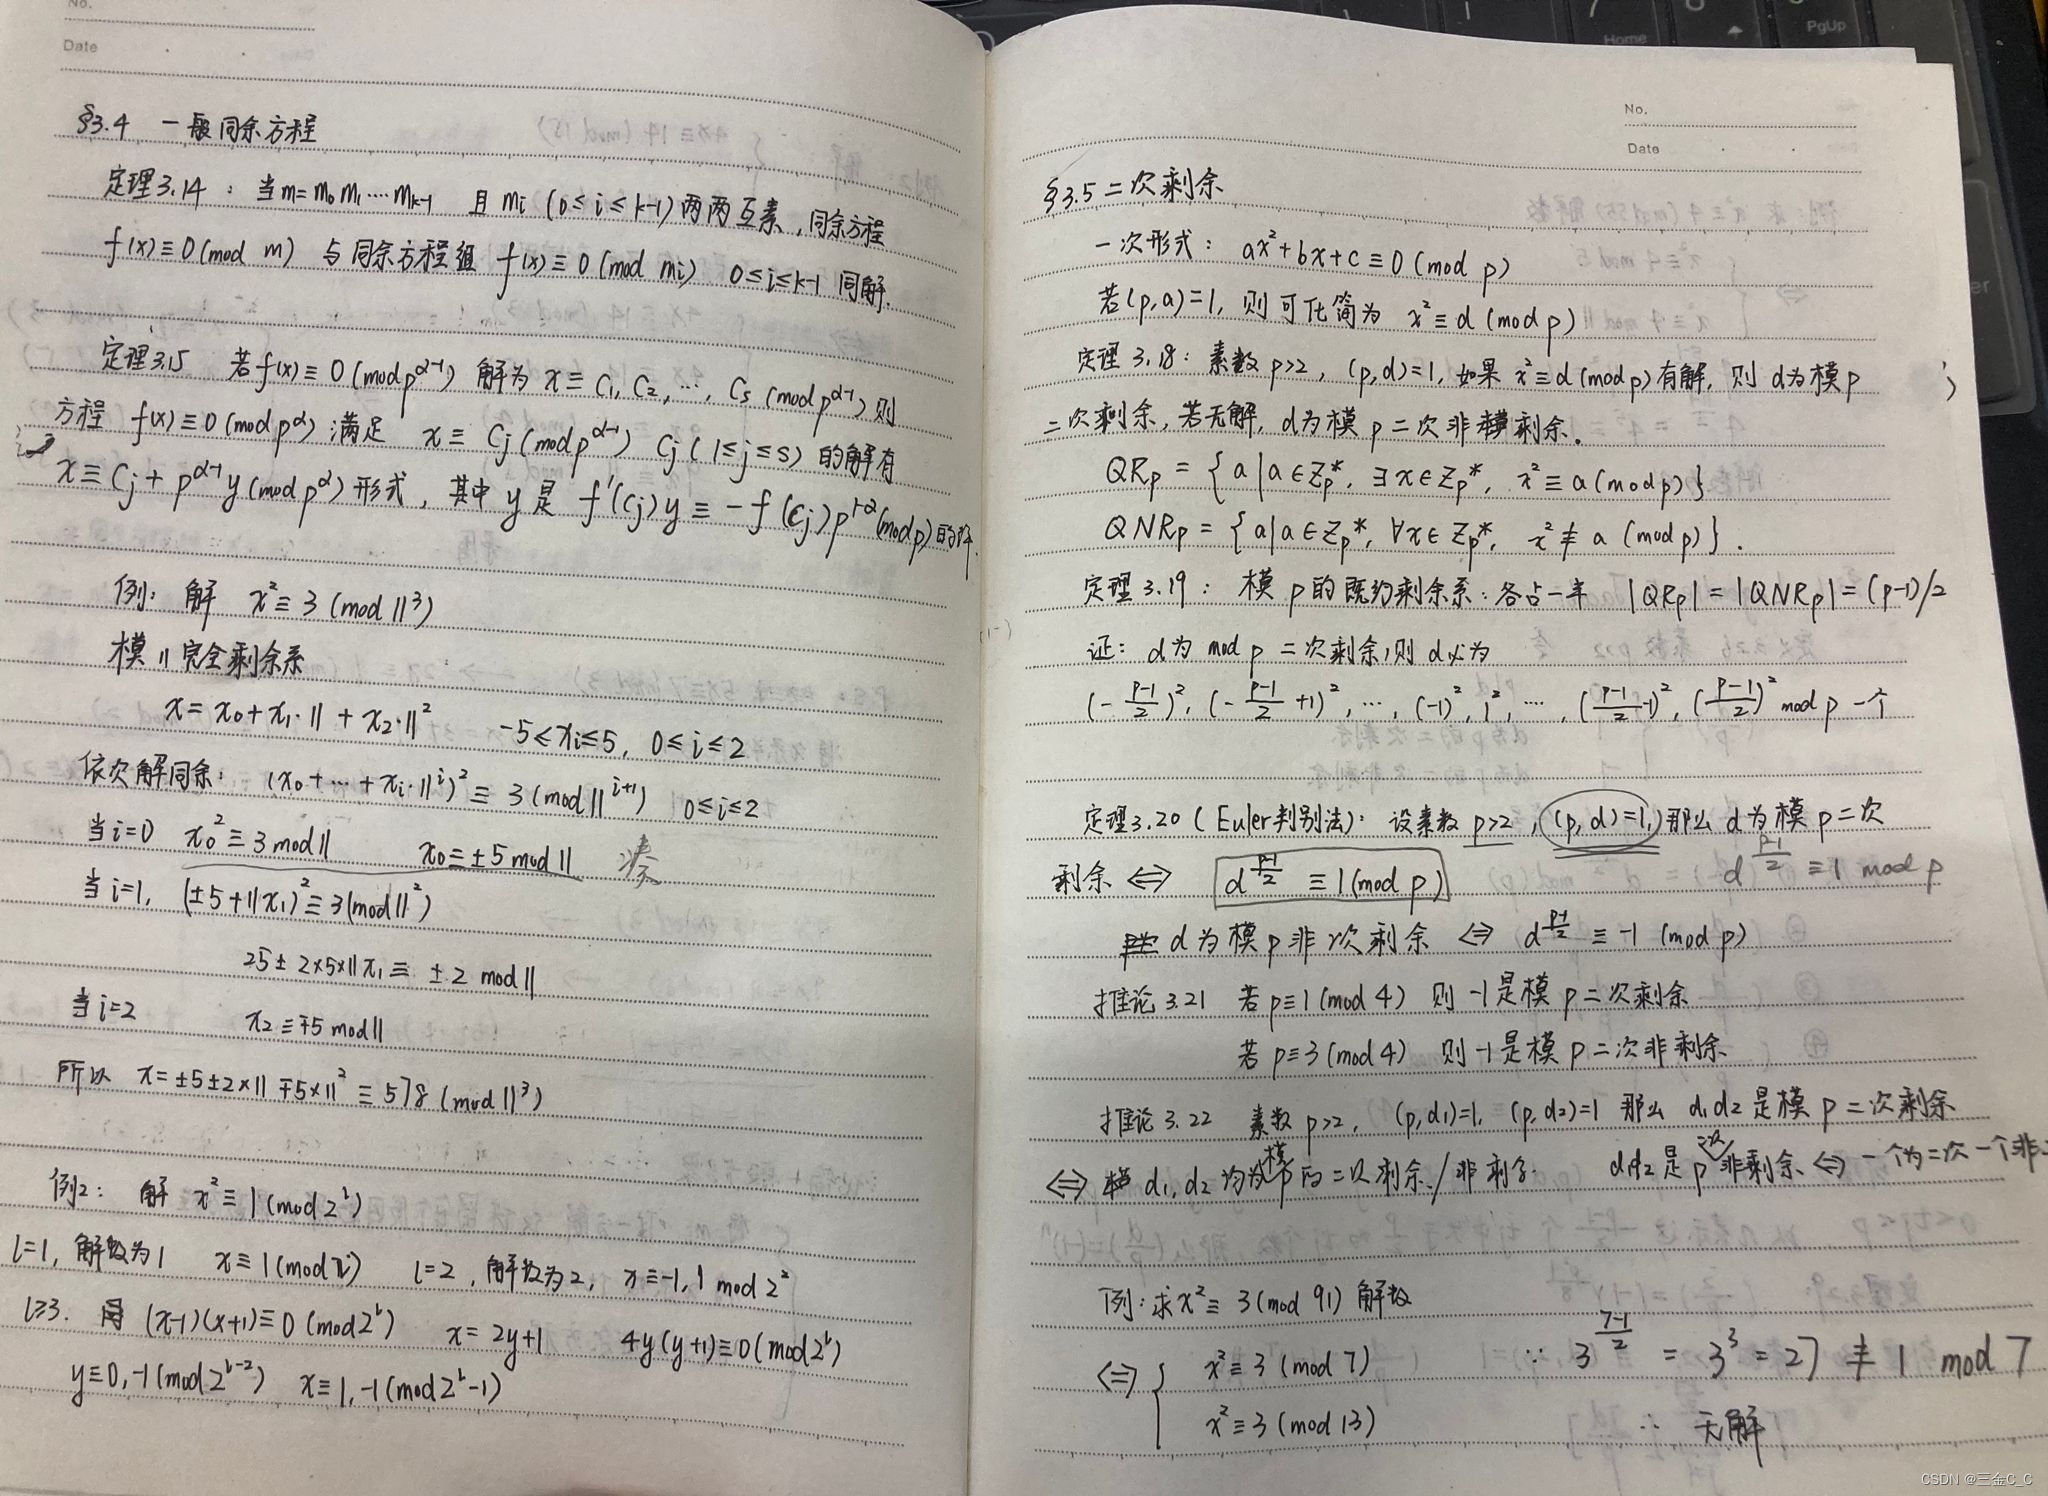 No.
Date
§3.4 一般同余方程
定理3.14：当m=m₀m₁⋯mₖ₋₁ 且 mᵢ (0≤i≤k-1)两两互素，同余方程
f(x)≡0(mod m) 与同余方程组 f(x)≡0(mod mᵢ) 0≤i≤k-1 同解.
定理3.15 若f(x)≡0(mod p^(α-1)) 解为 x≡C₁, C₂, ⋯, Cₛ (mod p^(α-1)) 则
方程 f(x)≡0(mod p^α) 满足 x≡Cⱼ(mod p^(α-1)) Cⱼ(1≤j≤s) 的解有
x≡Cⱼ+p^(α-1)y(mod p^α)形式，其中 y是 f'(Cⱼ)y≡-f(Cⱼ)p^(1-α)(mod p)的解.
例：解 x²≡3(mod 11³)
模11完全剩余系
x=x₀+x₁·11+x₂·11² -5≤xᵢ≤5, 0≤i≤2
依次解同余：(x₀+⋯+xᵢ·11^i)²≡3(mod 11^(i+1)) 0≤i≤2
当i=0 x₀²≡3 mod 11 x₀≡±5 mod 11 凑
当i=1, (±5+11x₁)²≡3(mod 11²)
25±2×5×11x₁≡ ±2 mod 11
当i=2 x₂≡∓5 mod 11
所以 x=±5±2×11∓5×11²≡578(mod 11³)
例2：解 x²≡1(mod 2^l)
l=1, 解数为1 x≡1(mod 2^l) l=2, 解数为2, x≡-1,1 mod 2²
l≥3. (x-1)(x+1)≡0(mod 2^l) x=2y+1 4y(y+1)≡0(mod 2^l)
y≡0,-1(mod 2^(l-2)) x≡1,-1(mod 2^l-1)
No.
Date
§3.5 二次剩余
一次形式：ax²+bx+c≡0(mod p)
若(p,a)=1, 则可化简为 x²≡d(mod p)
定理3.18：素数p>2, (p,d)=1, 如果 x²≡d(mod p)有解, 则 d为模p
二次剩余, 若无解, d为模p二次非剩余.
QRp={a|a∈Zp*, ∃x∈Zp*, x²≡a(mod p)}
QNRp={a|a∈Zp*, ∀x∈Zp*, x²≢a(mod p)}.
定理3.19：模p的既约剩余系：各占一半 |QRp|=|QNRp|=(p-1)/2
证：d为 mod p 二次剩余,则d必为
(-(p-1)/2)², (-(p-1)/2+1)², ⋯, (-1)², 1², ⋯, ((p-1)/2-1)², ((p-1)/2)² mod p 一个
定理3.20(Euler判别法)：设素数p>2, (p,d)=1, 那么 d为模p二次
剩余 ⇔ d^((p-1)/2)≡1(mod p) d^((p-1)/2)≡1 mod p
d为模p非2次剩余 ⇔ d^((p-1)/2)≡-1(mod p)
推论3.21 若p≡1(mod 4) 则-1是模p二次剩余
若p≡3(mod 4) 则-1是模p二次非剩余
推论3.22 素数p>2, (p,d₁)=1, (p,d₂)=1 那么 d₁d₂是模p二次剩余
⇔ d₁,d₂均为模p的二次剩余/非剩余. d₁d₂是p二次非剩余⇔一个为二次一个非二
例：求x²≡3(mod 91)解数
⇔{ x²≡3(mod 7) ∵ 3^((7-1)/2)=3³=27≢1 mod 7
x²≡3(mod 13) ∴ 无解
Home
PgUp
CSDN @三金C_C